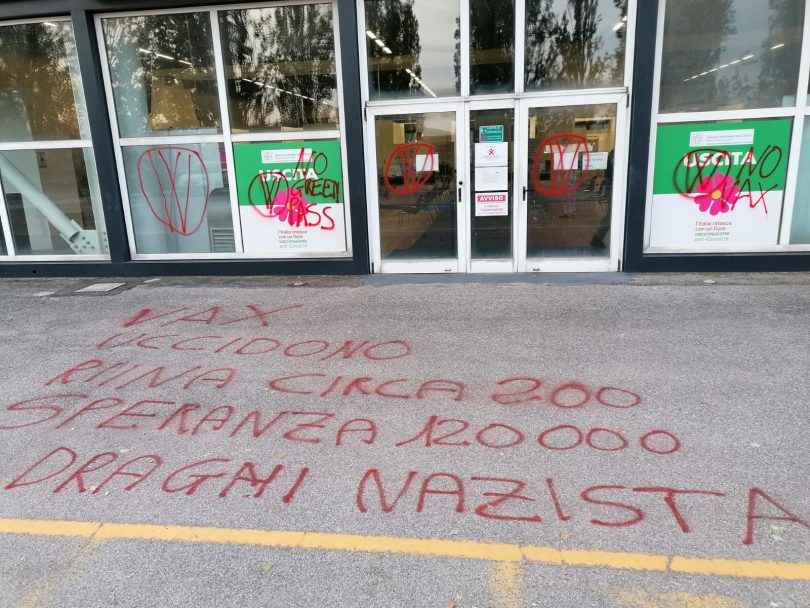 USCITA
NO
GREEN
PASS
l'Italia rinasce
con un fiore
vaccinazione
anti-Covid 19
AVVISO
USCITA
NO
VAX
l'Italia rinasce
con un fiore
vaccinazione
anti-Covid 19
VAX
UCCIDONO
RIINA CIRCA 200
SPERANZA 120000
DRAGHI NAZISTA